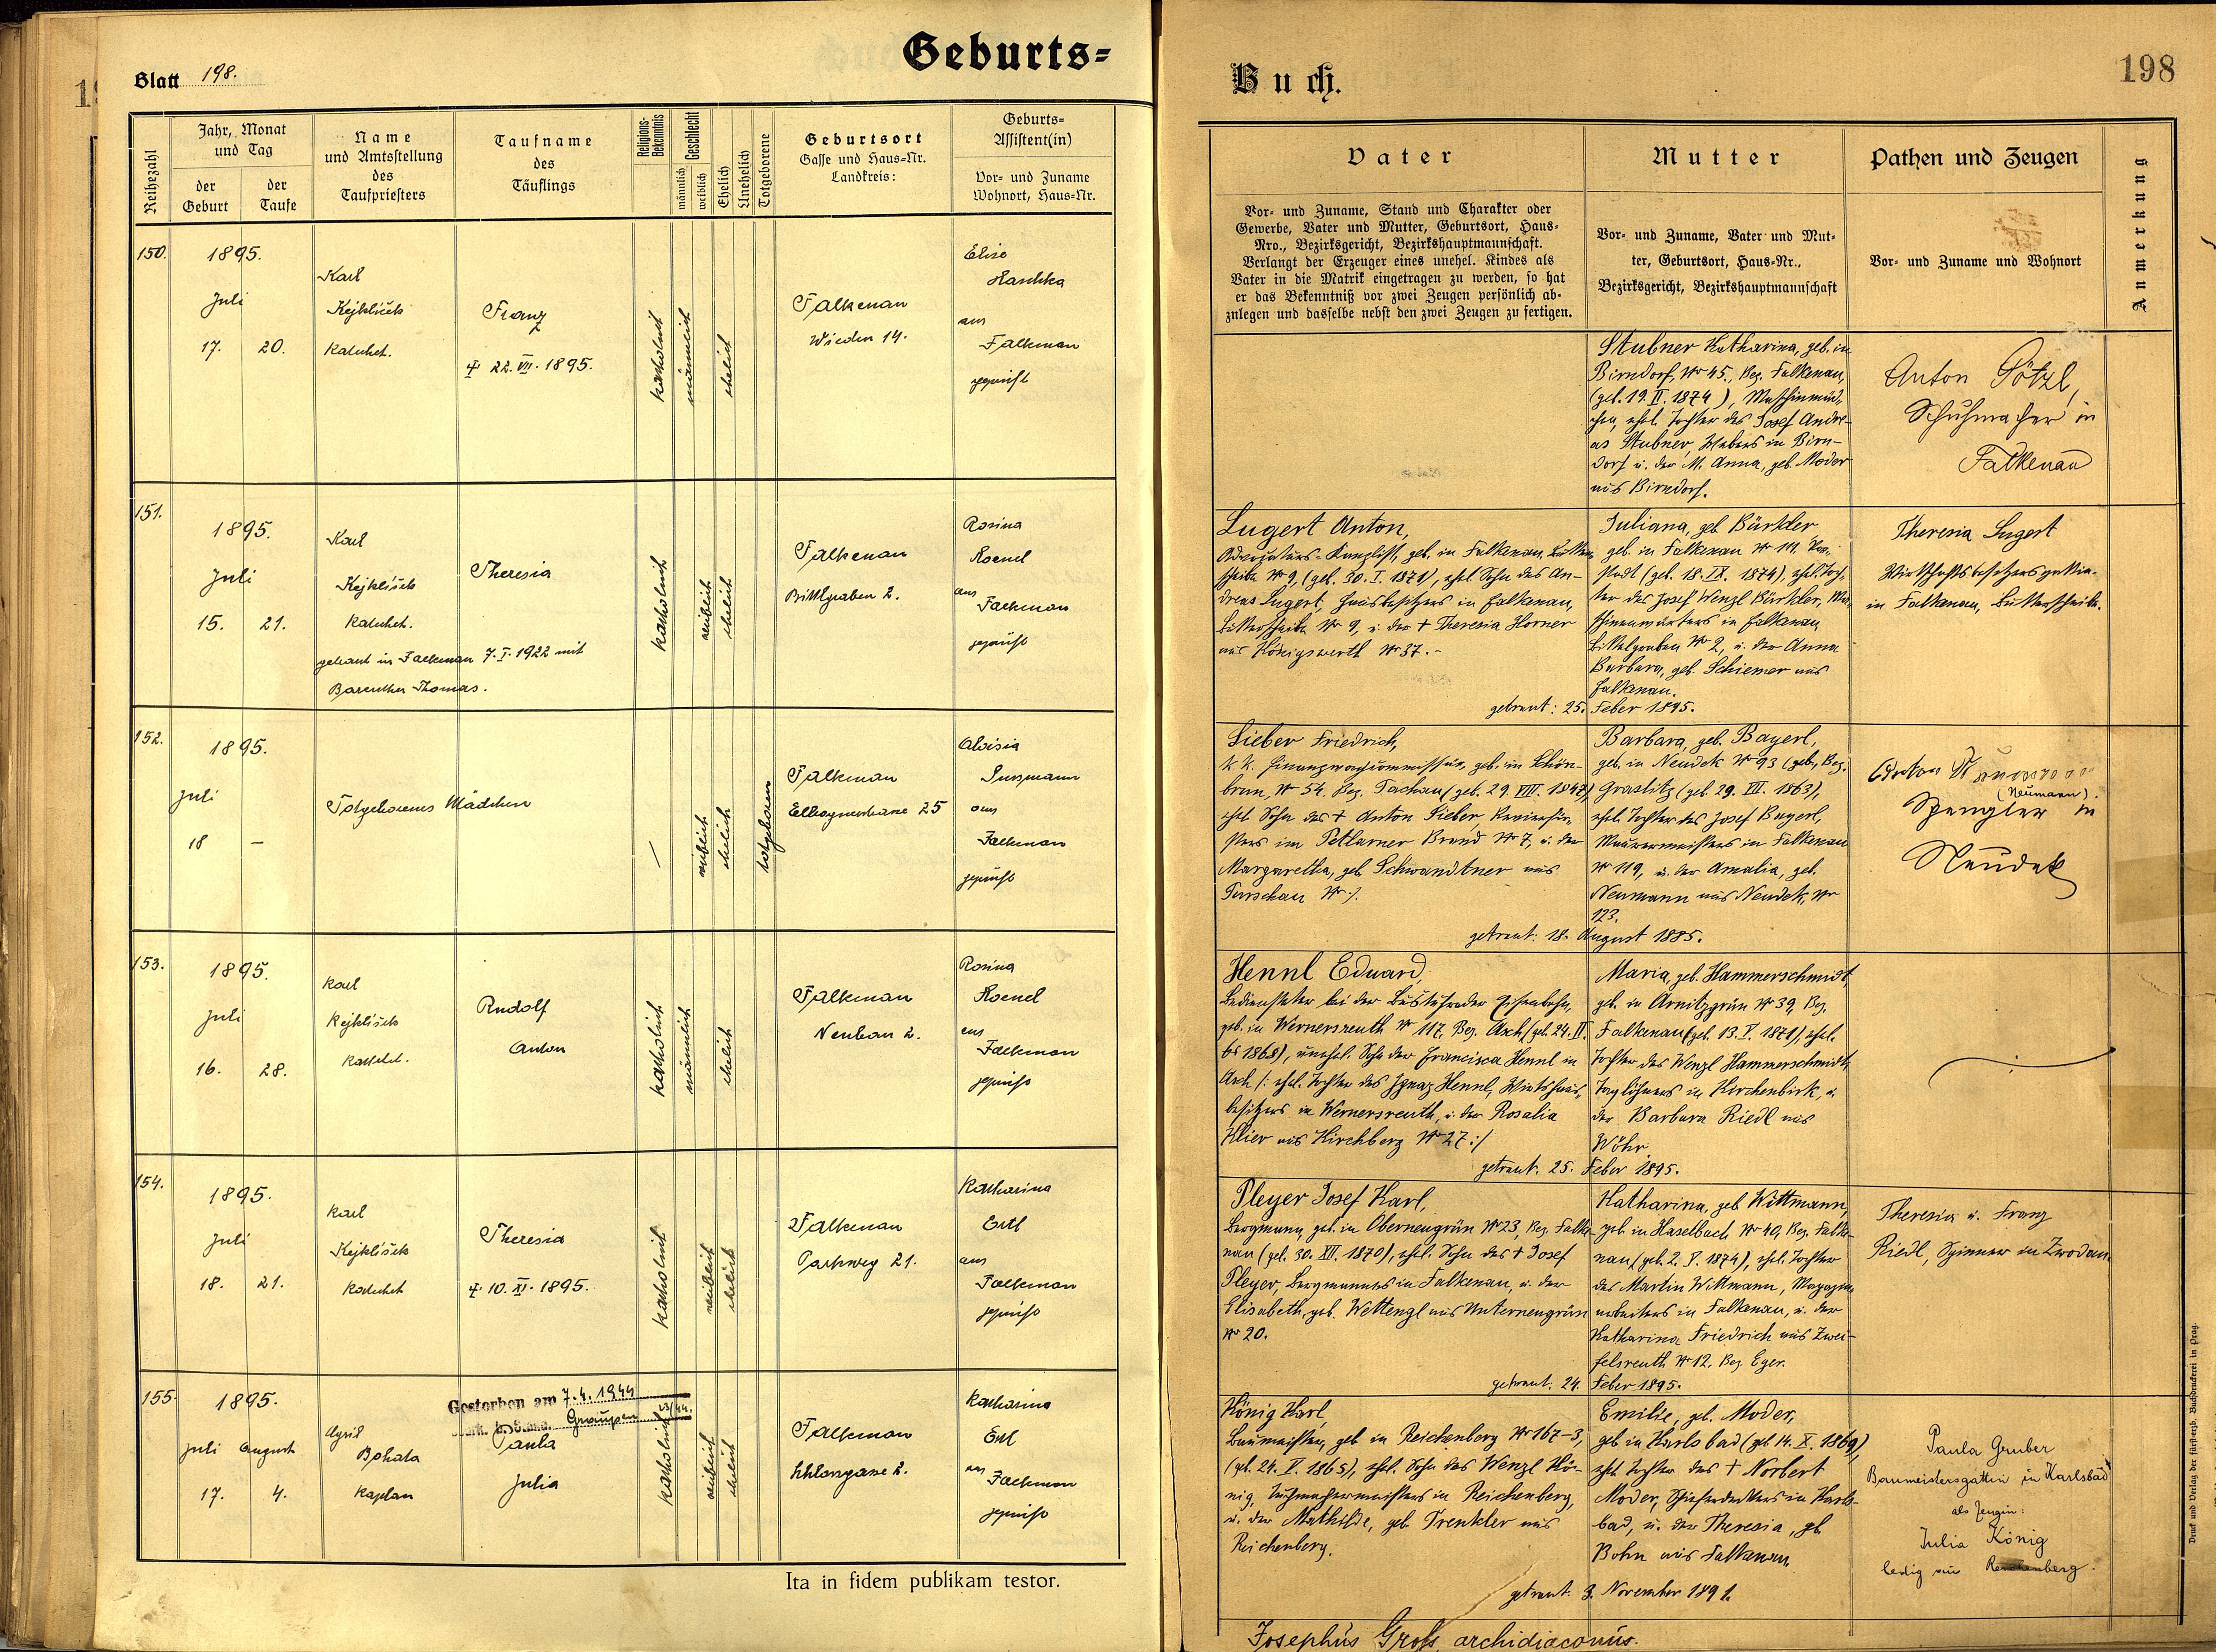 Geburts=
Blatt 198.
Reihezahl
Jahr, Monat
und Tag
der
Geburt
der
Taufe
Name
und Amtsstellung
des
Taufpriesters
Taufname
des
Täuflings
Religions-
Bekenntnis
Geschlecht
männlich
weiblich
Ehelich
Unehelich
Totgeborene
Geburtsort
Gasse und Haus=Nr.
Landkreis:
Geburts=
Assistent(in)
Vor= und Zuname
Wohnort, Haus=Nr.
150.
1895.
Juli
17. 20.
Karl
Kejklíček
Katechet.
Franz
† 22. VII. 1895.
katholisch
männlich
ehelich
Falkenau
Wieden 14.
Elise
Haschka
aus
Falkenau
geprüft
151.
1895.
Juli
15. 21.
Karl
Kejklíček
Katechet.
getraut in Falkenau 7. I. 1922 mit
Bareuther Thomas.
Theresia
katholisch
weiblich
ehelich
Falkenau
Bittlgraben 2.
Rosina
aus
Falkenau
geprüft
152.
1895.
Juli
18 –
Totgeborenes Mädchen
–
weiblich
ehelich
totgeboren
Falkenau
Elbognerstrasse 25
Aloisia
aus
Falkenau
geprüft
153.
1895.
Juli
16. 28.
Karl
Kejklíček
Katechet.
Rudolf
Anton
katholisch
männlich
ehelich
Falkenau
Neubau 2.
Rosina
aus
Falkenau
geprüft
154.
1895.
Juli
18. 21.
Karl
Kejklíček
Katechet
Theresia
† 10. XI. 1895.
katholisch
weiblich
ehelich
Falkenau
Parkweg 21.
Katharina
Ertl
aus
Falkenau
geprüft
155.
1895.
Juli August
17. 4.
Cyril
Bohata
Kaplan
Gestorben am 7.4.1944
Graupen
Paula
Julia
katholisch
weiblich
ehelich
Falkenau
Schlossgasse 2.
Katharina
Ertl
aus Falkenau
geprüft
Ita in fidem publikam testor.
Buch.
198
Vater
Vor= und Zuname, Stand und Charakter oder
Gewerbe, Vater und Mutter, Geburtsort, Haus=
Nro., Bezirksgericht, Bezirkshauptmannschaft.
Verlangt der Erzeuger eines unehel. Kindes als
Vater in die Matrik eingetragen zu werden, so hat
er das Bekenntniß vor zwei Zeugen persönlich ab=
zulegen und dasselbe nebst den zwei Zeugen zu fertigen.
Mutter
Vor= und Zuname, Vater und Mut=
ter, Geburtsort, Haus=Nr.,
Bezirksgericht, Bezirkshauptmannschaft
Pathen und Zeugen
Vor= und Zuname und Wohnort
Anmerkung
Stubner Katharina, geb. in
Birndorf, Nr 45., Bez. Falkenau,
(geb. 19. II. 1874),
ehel. Tochter des Josef Andre-
as Stubner, Webers in Birn-
dorf u. der M. Anna, geb. Moder
aus Birndorf.
Anton Götzl,
Schuhmacher in
Falkenau
Lugert Anton,
Advocaturs-Kanzlist, geb. in Falkenau,
Nr 9, (geb. 30. I. 1871), ehel. Sohn des An-
dreas Lugert, Hausbesitzers in Falkenau,
Nr 9, u. der † Theresia Horner
aus Königswerth Nr 37.-
Juliana, geb. Bürkler
geb. in Falkenau Nr 111, Vor-
stadt (geb. 18. IX. 1874), ehel. Toch-
ter des Josef Wenzl Bürkler, Ma-
schinenwärters in Falkenau
Nr 2, u. der Anna
Barbara, geb. Schiemer aus
Falkenau.
getraut: 25. Feber 1895.
Theresia Lugert
Wirthschaftsbesitzersgattin
in Falkenau,
Lieber Friedrich,
geb. in Schön-
brunn, Nr 54. Bez. Tachau (geb. 29. VIII. 1847),
ehel. Sohn des † Anton Lieber,
im Petlarner Brand Nr 7, u. der
Margaretha, geb. Schwandtner aus
Purschau Nr 7.
Barbara, geb. Bayerl,
geb. in Neudek Nr 93 (geb. Bez.
Graslitz (geb. 29. VII. 1863),
ehel. Tochter des Josef Bayerl,
Maurermeisters in Falkenau
Nr 119, u. der Amalia, geb.
Neumann aus Neudek, Nr
123.
getraut: 18. August 1885.
Anton
(Neumann).
Spengler in
Neudek
Hennl Eduard,
Bediensteter bei der Buschtehrader Eisenbahn,
geb. in Wernersreuth Nr 117, Bez. Asch (geb. 24. II.
1868), unehel. Sohn der Francisca Hennl in
Asch /: ehel. Tochter des Ignaz Hennl, Wirtshaus-
besitzers in Wernersreuth, u. der Rosalia
Klier aus Kirchberg Nr 27 :/
Maria, geb. Hammerschmidt,
geb. in Arnitzgrün Nr 39, Bez.
Falkenau (geb. 13. V. 1871), ehel.
Tochter des Wenzl Hammerschmidt,
Taglöhners in Kirchenbirk, u.
der Barbara Riedl aus
Wöhr.
getraut. 25. Feber 1895.
Pleyer Josef Karl,
Bergmann, geb. in Oberneugrün Nr 23, Bez. Falke-
nau (geb. 30. XII. 1870), ehel. Sohn des † Josef
Pleyer, Bergmannes in Falkenau, u. der
Elisabeth, geb. Wettengl aus Unterneugrün
Nr 20.
Katharina, geb. Wittmann,
geb. in Haselbach Nr 40, Bez. Falke-
nau (geb. 2. V. 1874), ehel. Tochter
des Martin Wittmann, Magazins-
arbeiters in Falkenau, u. der
Katharina Friedrich aus Zwei-
felsreuth Nr 12, Bez. Eger.
getraut. 24. Feber 1895.
Theresia u. Franz
Riedl, Spinner in Zwodau
König Karl,
Baumeister, geb. in Reichenberg Nr 167-3,
(geb. 24. V. 1865), ehel. Sohn des Wenzl Kö-
nig, Tuchmachermeisters in Reichenberg,
u. der Mathilde, geb. Trenkler aus
Reichenberg.
Emilie, geb. Moder,
geb. in Karlsbad (geb. 14. X. 1869),
ehel. Tochter des † Norbert
Moder, Schieferdeckers in Karls-
bad, u. der Theresia, geb.
Bohn aus Falkenau
getraut: 3. November 1891.
Paula Gruber
Baumeistersgattin in Karlsbad
als Zeugin:
Julia König
ledig aus Reichenberg.
Josephus Groß, archidiaconus.
Druck und Verlag der fürsterzb. Buchdruckerei in Prag.